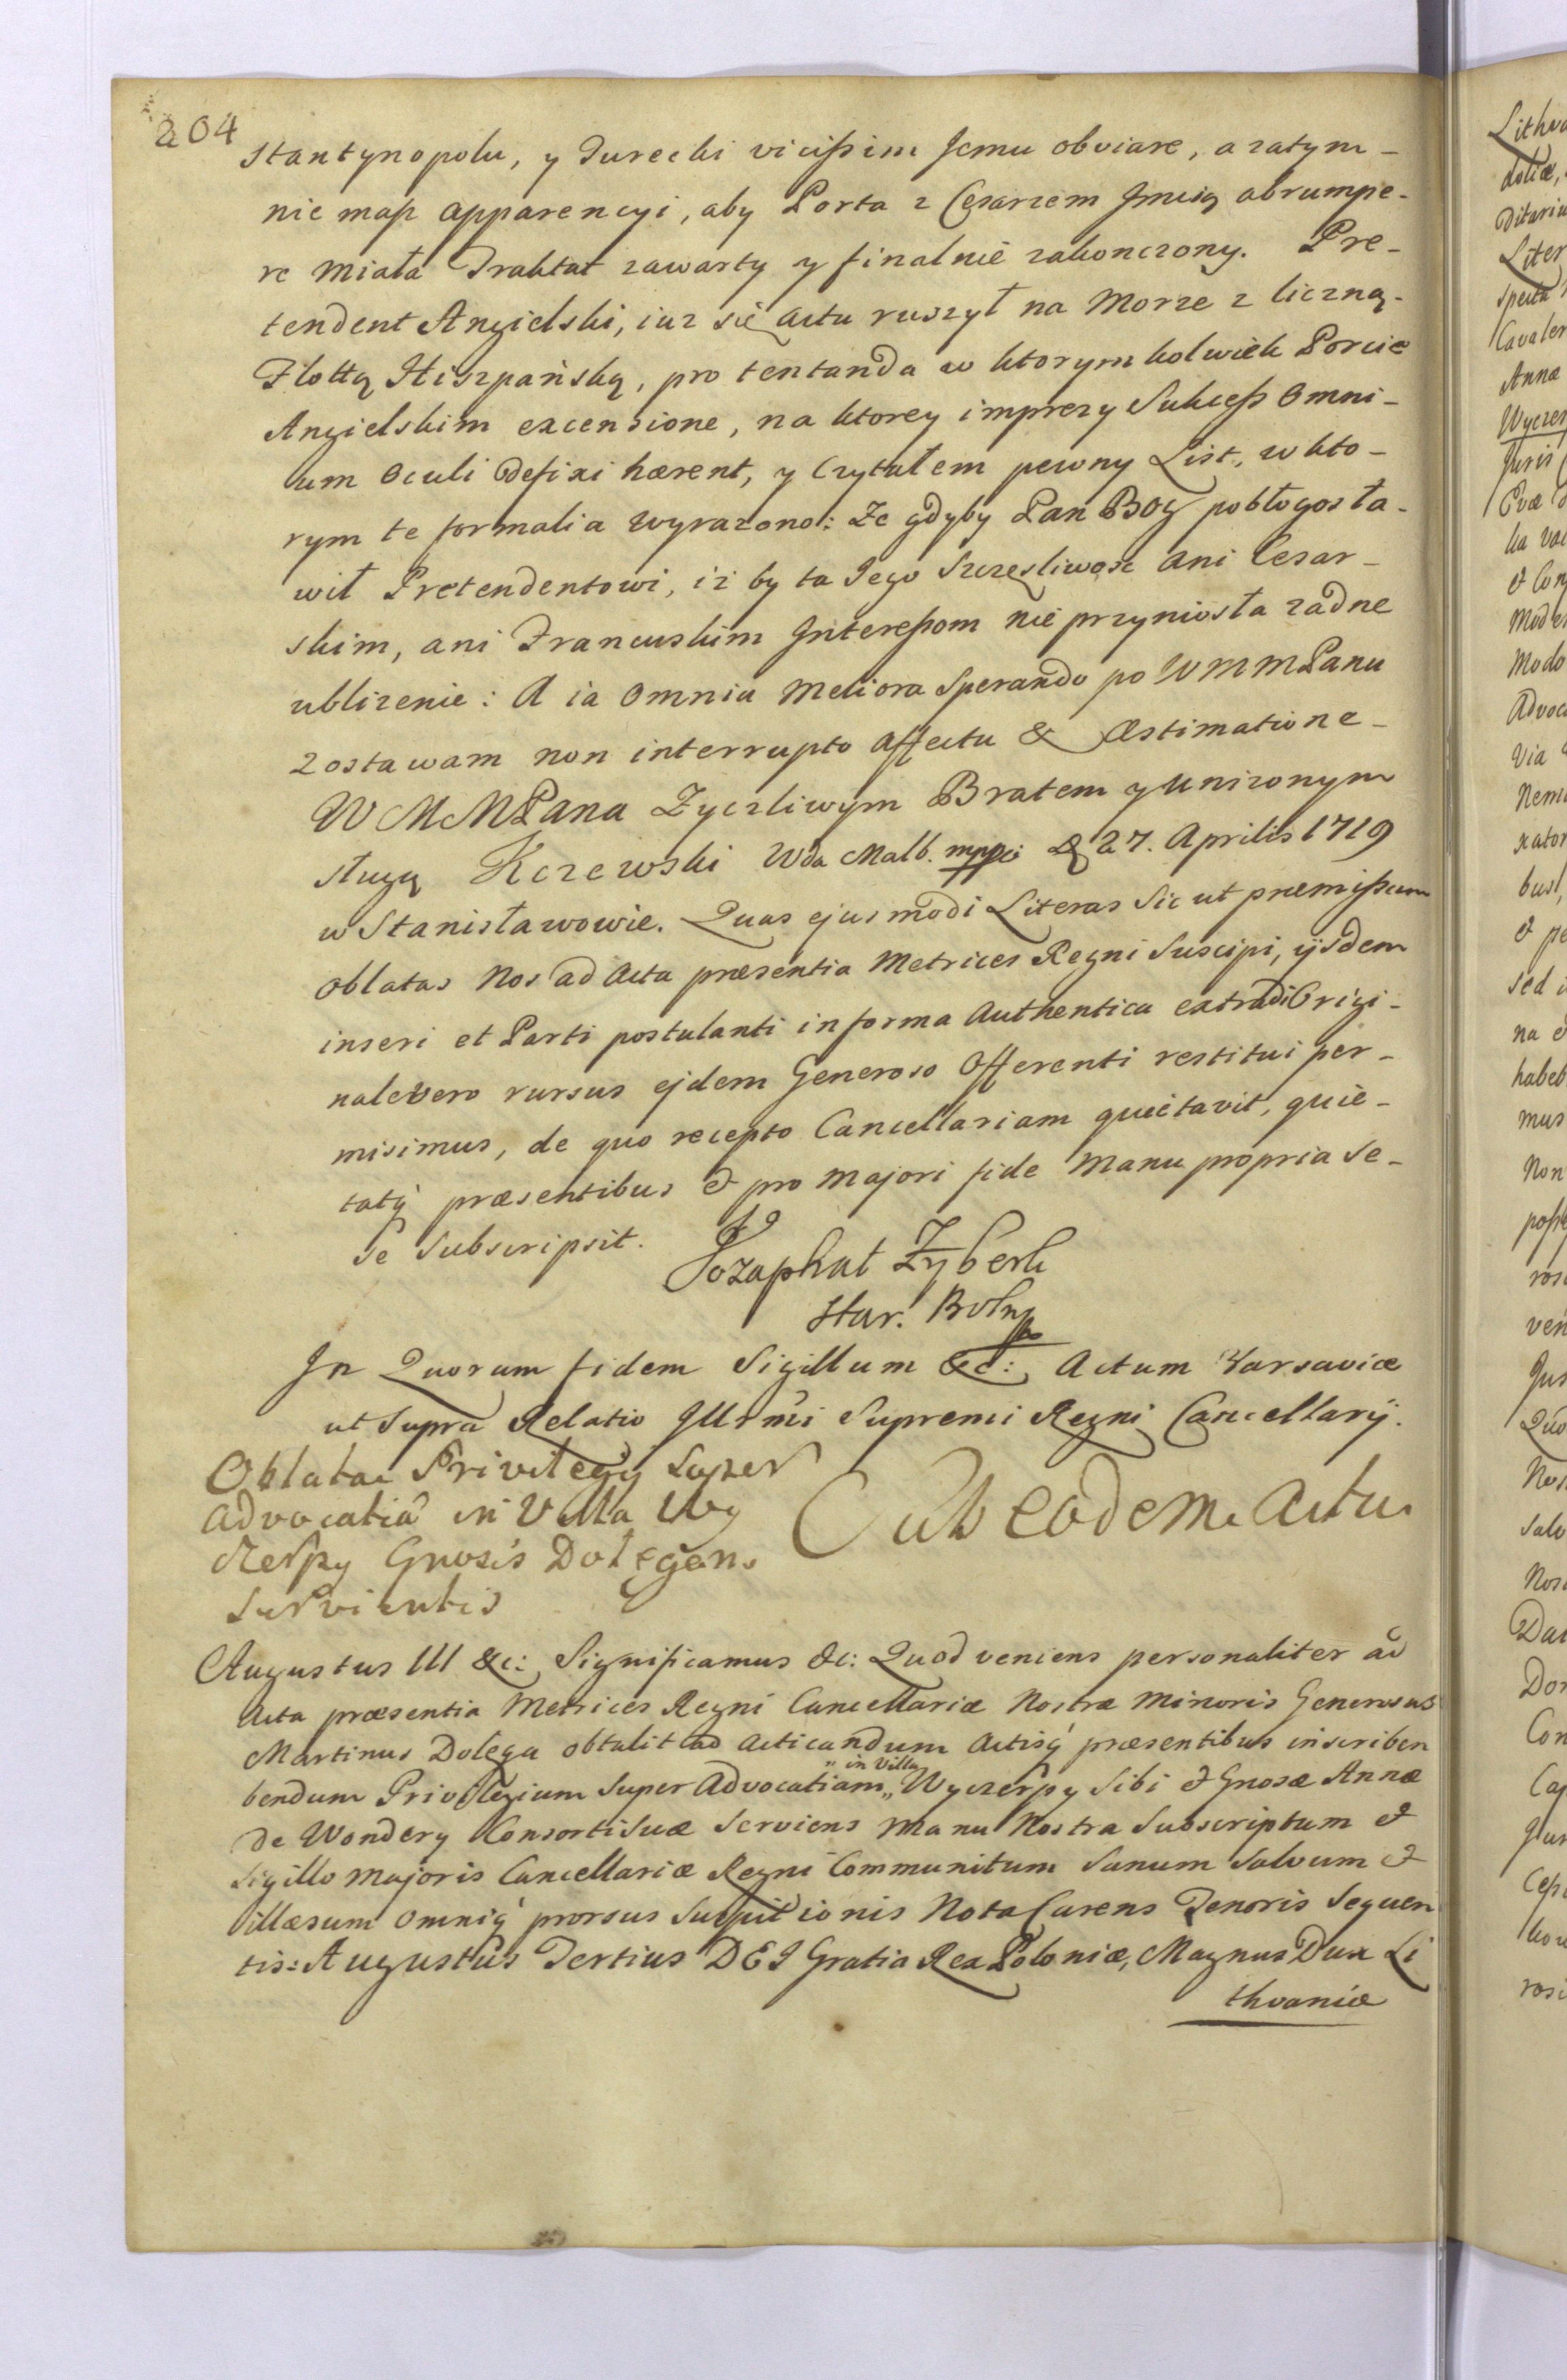 204
stantynopolu, y Turecki vicißim Jemu obviare, a zatym-
nie maß apparencyi, aby Porta z Cesarzem Jmcią abrumpe-
re miała Traktat zawarty y finalnie zakonczony. Pre-
tendent Angielski, iuz się actu ruszył na Morze z liczną-
Flottą Hiszpańską, pro tentanda w ktorym kolwiek Porcie
Angielskim excensione, na ktorey imprezy Sukceß Omni-
um Oculi defixi hærent, y Czytałem pewny List, w kto-
rym te formalia wyrazono: Ze gdyby Pan Bog pobłogosła-
wił Pretendentowi, iz by ta Jego Szczęsliwosc ani Cesar-
skim, ani Francuskim Jntereßom nie przyniosła zadne
ublizenie: A ia Omnia Meliora Sperando po WMMPanu
zostawam non interrupto affectu & Æstimatione-
WMMPana Zyczliwym Bratem y unizonym
sługą Kczewski Wda Malb. mpp D 27. Aprilis 1719
w Stanisławowie. Quas ejusmodi Literas Sic ut præmißum
oblatas Nos ad Acta præsentia Metrices Regni Suscipi, ijsdem
inseri et Parti postulanti in forma Authentica extradi Origi-
nale vero rursus ejdem Generoso Offerenti restitui per-
misimus, de quo recepto Cancellariam quietavit, quie-
tatq́ præsentibus & pro majori fide Manu propria se-
se subscripsit.
Jozaphat Zyberk
Star. Boln
Jn Quorum fidem Sigillum &c: Actum Varsaviæ
ut Supra Relatio Jllrmi Supremi Regni Cancellarij.
Oblatae Privilegij Super
advocatiā in Villa Wy
czerpy Gnosis Dołęgom
servientis
Sub eodem Actu
Augustus III &c: Significamus &c: Quod veniens personaliter ad
Acta præsentia Metrices Regni Cancellariæ Nostræ Minoris Generosus
Martinus Dolęga obtulit ad Acticandum Actisq́ præsentibus inscriben
bendum Privilegium Super Advocatiam „ in Villa „ Wyczerpy Sibi & Gnosæ Annæ
de Wondery Consorti Suæ Serviens Manu Nostra Subscriptum &
Sigillo Majoris Cancellariæ Regni Communitum Sanum Salvum &
illæsum Omniq́ prorsus Suspitionis Nota Carens Tenoris Sequen
tis: Augustus Tertius DEI Gratia Rex Poloniæ, Magnus Dux Li
thvaniæ